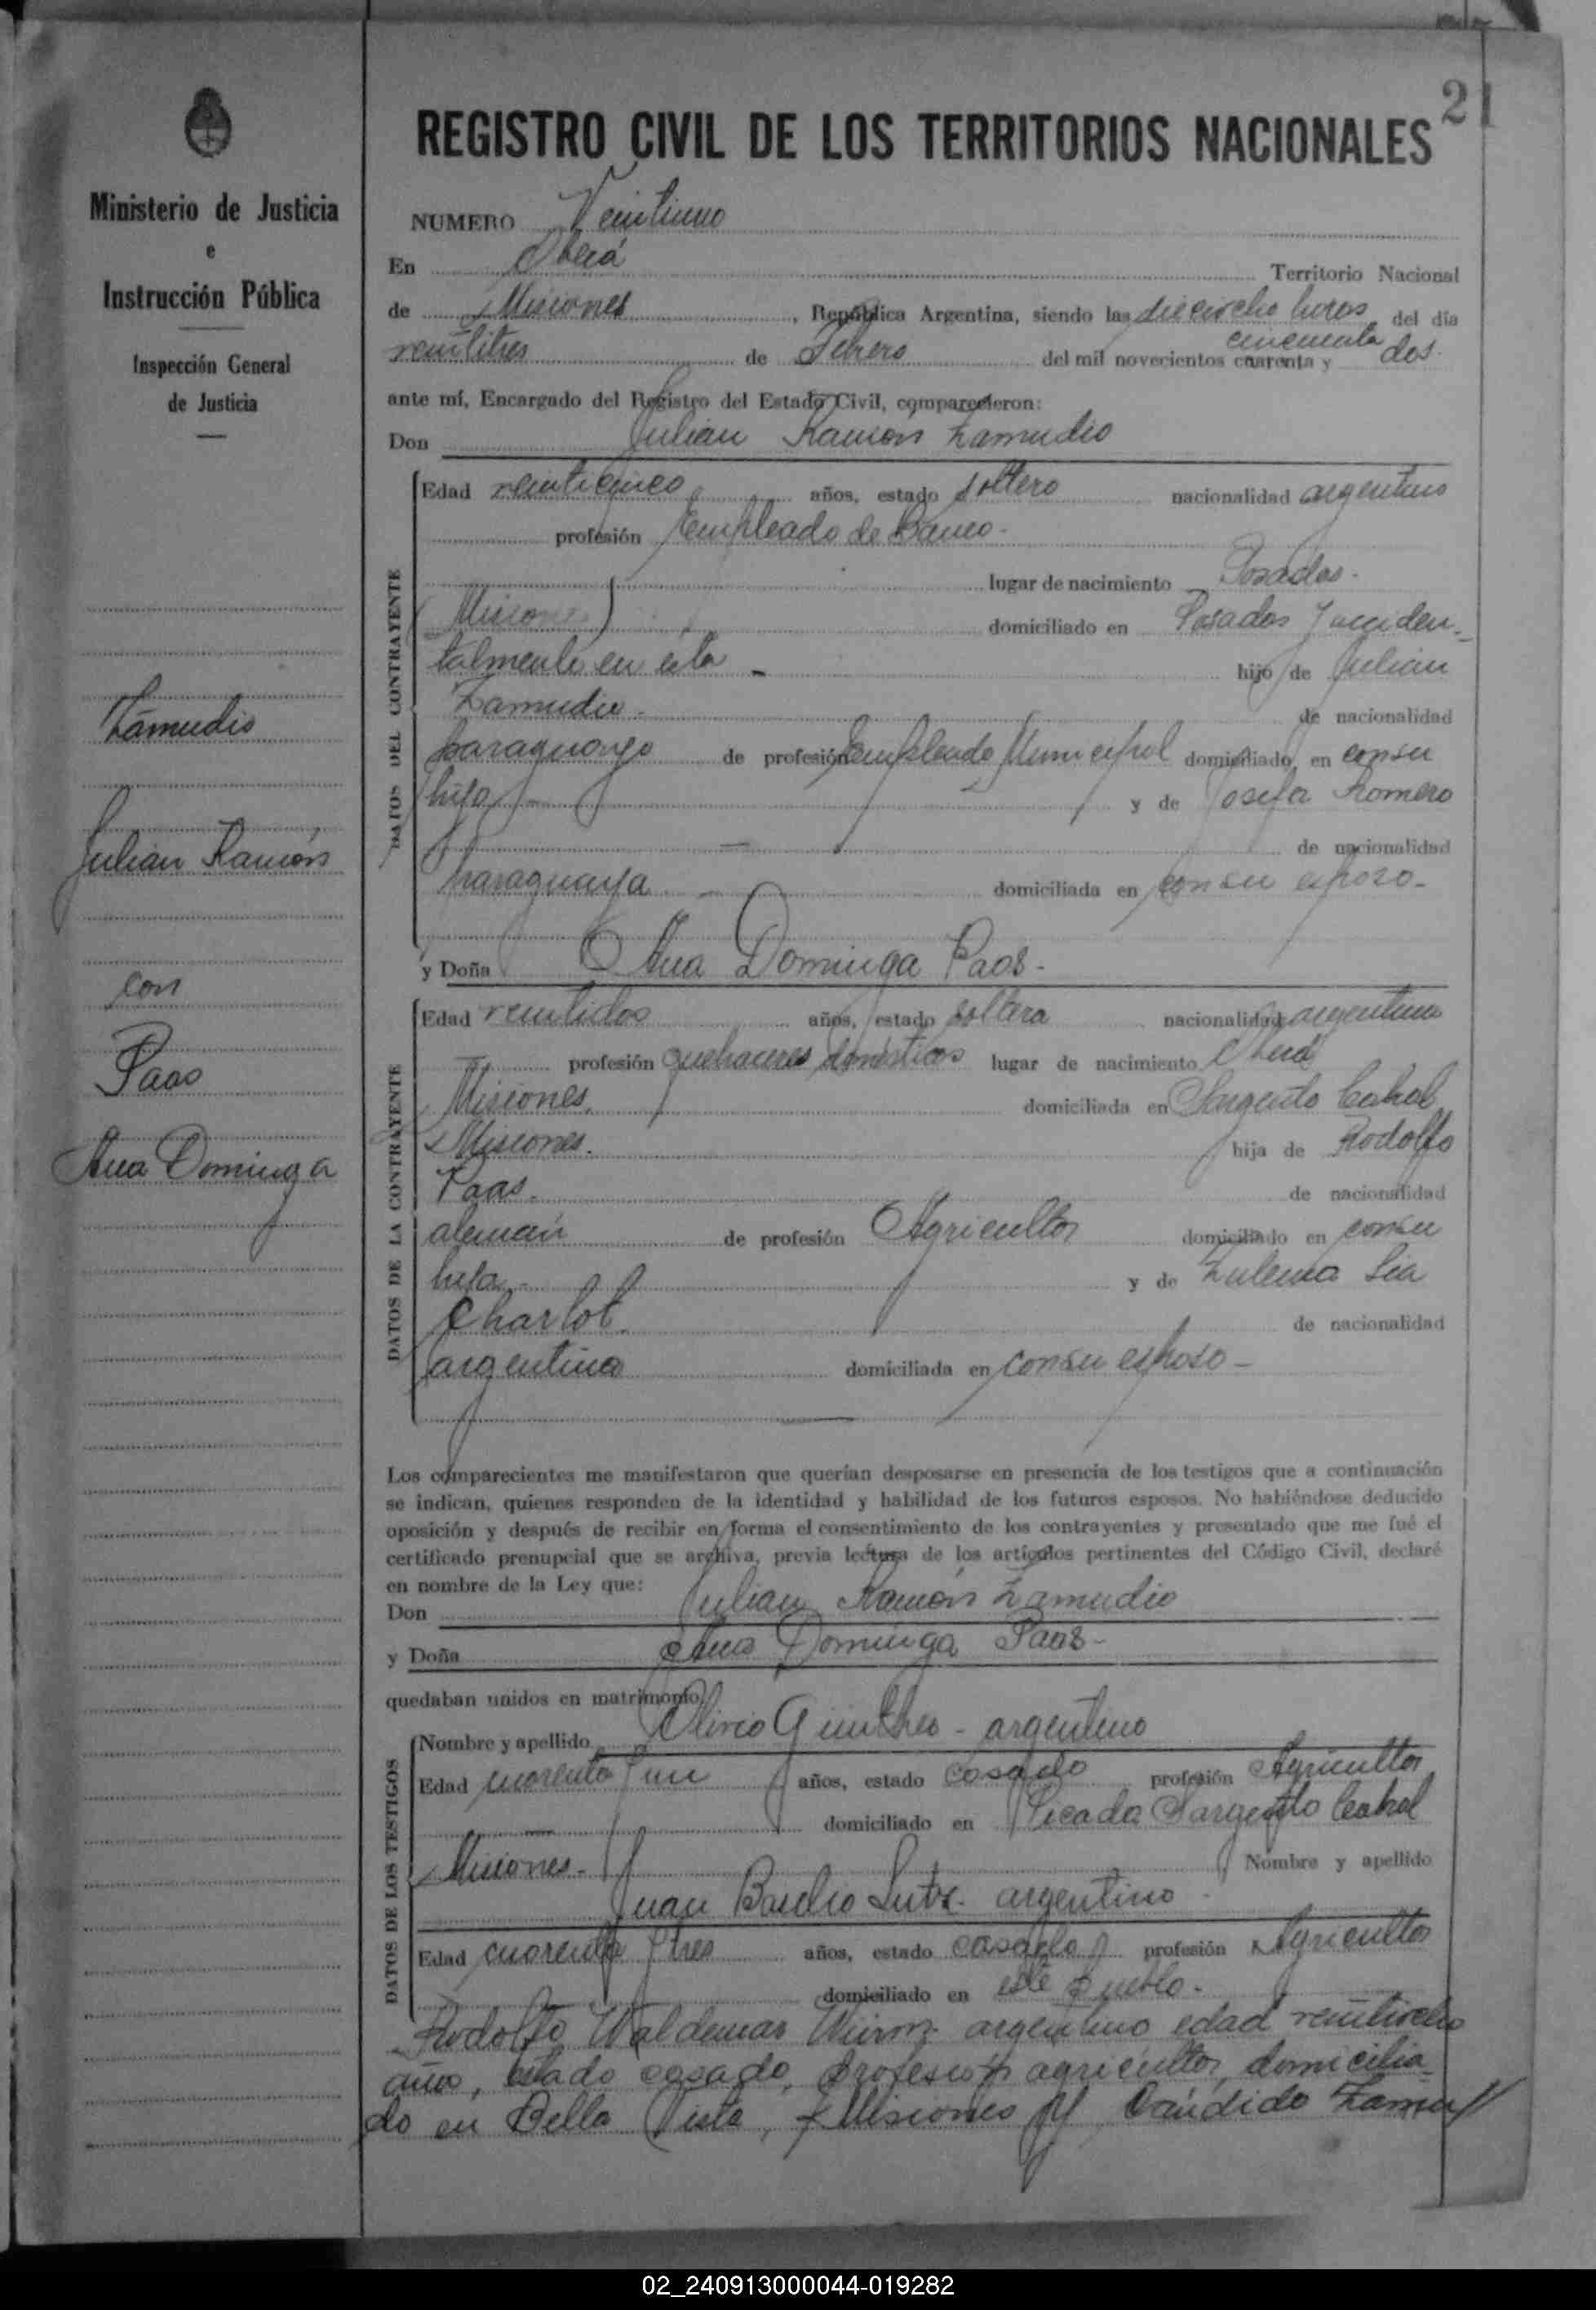 21
REGISTRO CIVIL DE LOS TERRITORIOS NACIONALES
Ministerio de Justicia
e
Instrucción Pública
Inspección General
de Justicia
Zamudio
Julián Ramón
con
Paas
Ana Dominga
NUMERO Veintiuno
En Oberá Territorio Nacional
de Misiones, República Argentina, siendo las dieciocho horas del día
cincuenta
veintitres de Febrero del mil novecientos cuarenta y dos.
ante mí, Encargado del Registro del Estado Civil, comparecieron:
Don Julián Ramón Zamudio
DATOS DEL CONTRAYENTE
Edad veinticinco años, estado soltero nacionalidad argentino
profesión Empleado de Banco-
lugar de nacimiento Posadas-
Misiones domiciliado en Posadas y acciden-
talmente en esta - hijo de Julián
Zamudio- de nacionalidad
paraguayo de profesión Empleado Municipal domiciliado en con su
hijo- y de Josefa Romero
- de nacionalidad
paraguaya - domiciliada en con su esposo-
y Doña Ana Dominga Paas-
DATOS DE LA CONTRAYENTE
Edad veintidos años, estado soltera nacionalidad argentina
profesión quehaceres domésticos lugar de nacimiento Oberá
Misiones. domiciliada en Sargento Cabral
Misiones. hija de Rodolfo
Paas. de nacionalidad
alemán de profesión Agricultor domiciliado en con su
hija- y de Zulema Lia
Charlot. de nacionalidad
argentina domiciliada en con su esposo-
Los comparecientes me manifestaron que querían desposarse en presencia de los testigos que a continuación
se indican, quienes responden de la identidad y habilidad de los futuros esposos. No habiéndose deducido
oposición y después de recibir en forma el consentimiento de los contrayentes y presentado que me fué el
certificado prenupcial que se archiva, previa lectura de los artículos pertinentes del Código Civil, declaré
en nombre de la Ley que:
Don Julian Ramón Zamudio
y Doña Ana Dominga Paas-
quedaban unidos en matrimonio
DATOS DE LOS TESTIGOS
Nombre y apellido - argentino
Edad cuarenta y un años, estado casado profesión Agricultor
domiciliado en Picada Sargento Cabral
Misiones- Nombre y apellido
Juan argentino
Edad cuarenta y tres años, estado casado profesión Agricultor
domiciliado en este pueblo-
Rodolfo Waldemar argentino edad veintiocho
años, estado casado, profesión agricultor, domicilia-
do en Bella Vista, Misiones y Cándido Zamu//
02_240913000044-019282